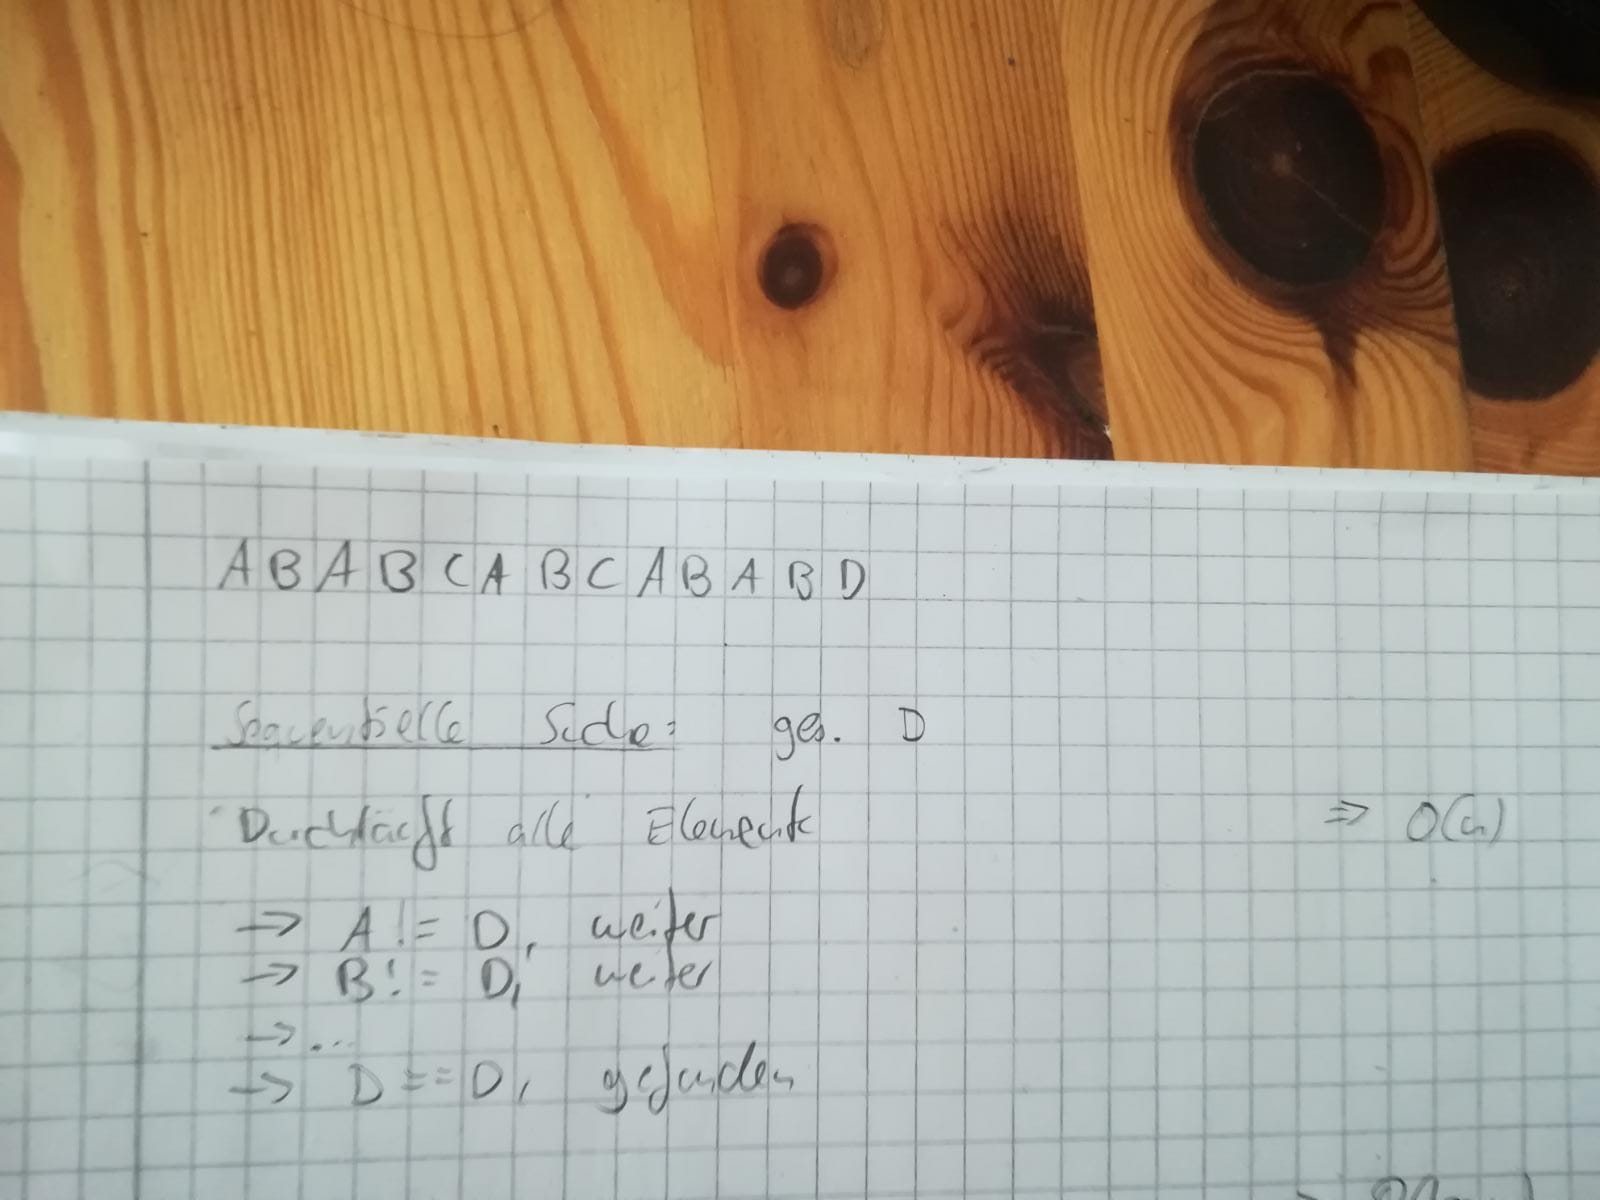 A B A B C A B C A B A B D
Sequentielle Suche: ges. D
Durchläuft alle Elemente => O(n)
-> A != D, weiter
-> B != D, weiter
-> ...
-> D == D, gefunden